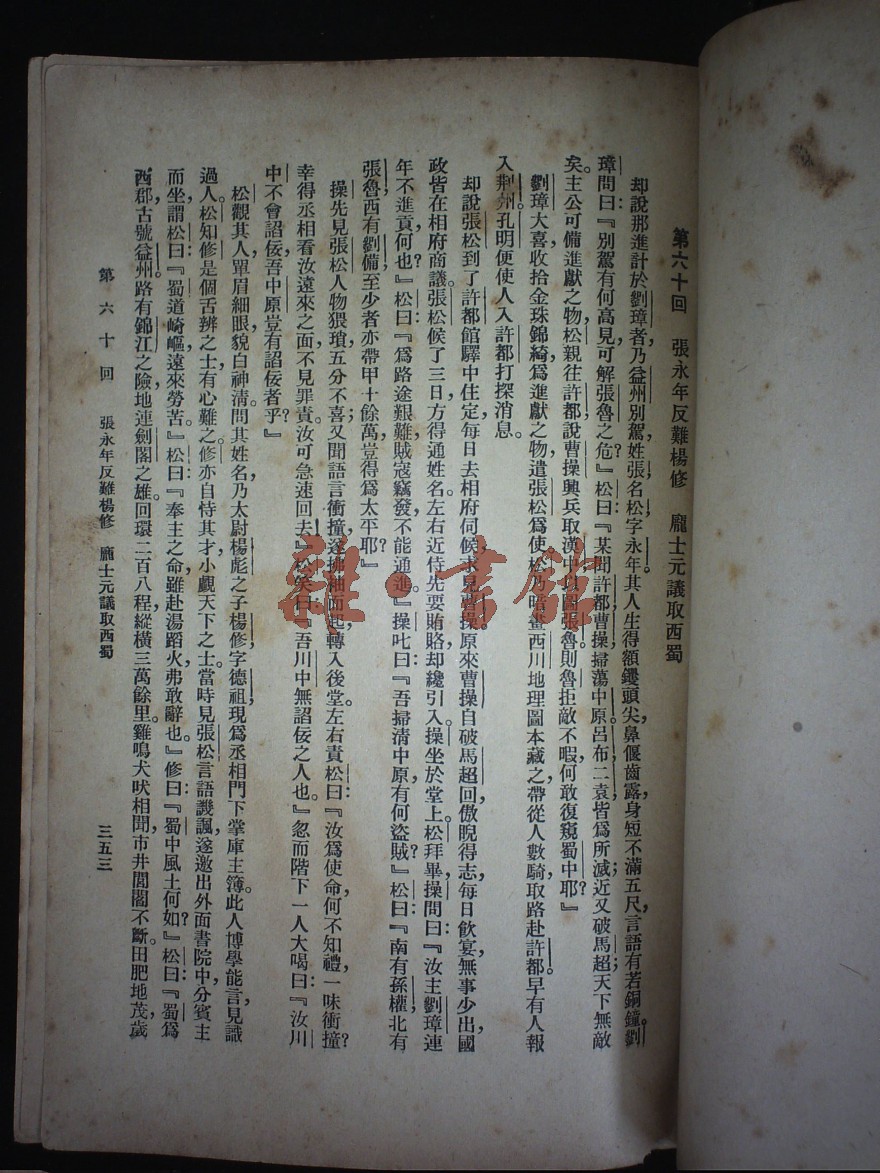 第六十回　張永年反難楊修　龐士元議取西蜀
却說那進計於劉璋者，乃益州別駕，姓張，名松，字永年。其人生得額钁頭尖，鼻偃齒露，身短不滿五尺，言語有若銅鐘。劉
璋問曰：『別駕有何高見，可解張魯之危？』松曰：『某聞許都曹操，掃蕩中原，呂布二袁皆爲所滅；近又破馬超，天下無敵
矣。主公可備進獻之物，松親往許都，說曹操興兵取漢中，以圖張魯。則魯拒敵不暇，何敢復窺蜀中耶？』
劉璋大喜，收拾金珠錦綺，爲進獻之物，遣張松爲使。松乃暗畫西川地理圖本藏之，帶從人數騎，取路赴許都。早有人報
入荆州。孔明便使人入許都打探消息。
却說張松到了許都館驛中住定，每日去相府伺候，求見曹操。原來曹操自破馬超回，傲睨得志，每日飲宴，無事少出，國
政皆在相府商議。張松候了三日，方得通姓名。左右近侍先要賄賂，却纔引入。操坐於堂上，松拜畢，操問曰：『汝主劉璋連
年不進貢，何也？』松曰：『爲路途艱難，賊寇竊發，不能通進。』操叱曰：『吾掃清中原，有何盜賊？』松曰：『南有孫權，北有
張魯，西有劉備，至少者亦帶甲十餘萬，豈得爲太平耶？』
操先見張松人物猥瑣，五分不喜；又聞語言衝撞，遂拂袖而起，轉入後堂。左右責松曰：『汝爲使命，何不知禮，一味衝撞？
幸得丞相看汝遠來之面，不見罪責。汝可急速回去！』松笑曰：『吾川中無諂佞之人也。』忽而階下一人大喝曰：『汝川
中不會諂佞，吾中原豈有諂佞者乎？』
松觀其人，單眉細眼，貌白神清。問其姓名，乃大尉楊彪之子楊修，字德祖，現爲丞相門下掌庫主簿。此人博學能言，見識
過人。松知修是個舌辨之士，有心難之。修亦自恃其才，小覷天下之士。當時見張松言語譏諷，遂邀出外面書院中，分賓主
而坐，謂松曰：『蜀道崎嶇，遠來勞苦。』松曰：『奉主之命，雖赴湯蹈火，弗敢辭也。』修曰：『蜀中風土何如？』松曰：『蜀爲
西郡，古號益州。路有錦江之險，地連劍閣之雄。回環二百八程，縱橫三萬餘里。雞鳴犬吠相聞，市井閭閻不斷。田肥地茂，歲
第六十回　張永年反難楊修　龐士元議取西蜀　三五三
雜·書館